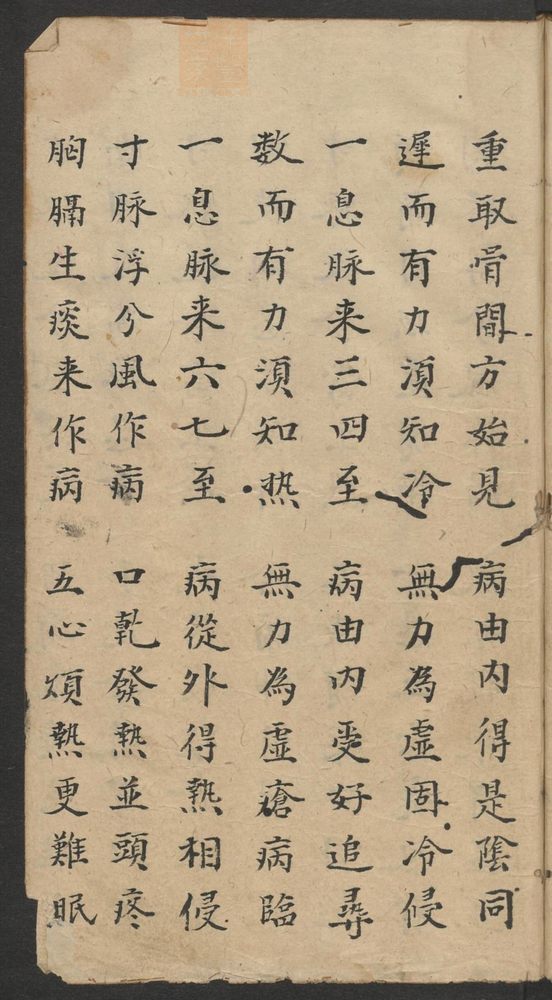 重取骨間方始見 病由内得是陰同
遲而有力須知冷 無力為虛固冷侵
一息脉来三四至 病由内受好追尋
数而有力須知热 無力為虛瘡病臨
一息脉来六七至 病從外得熱相侵
寸脉浮兮風作病 口乾發熱並頭疼
胸膈生痰来作病 五心煩熱更難眠